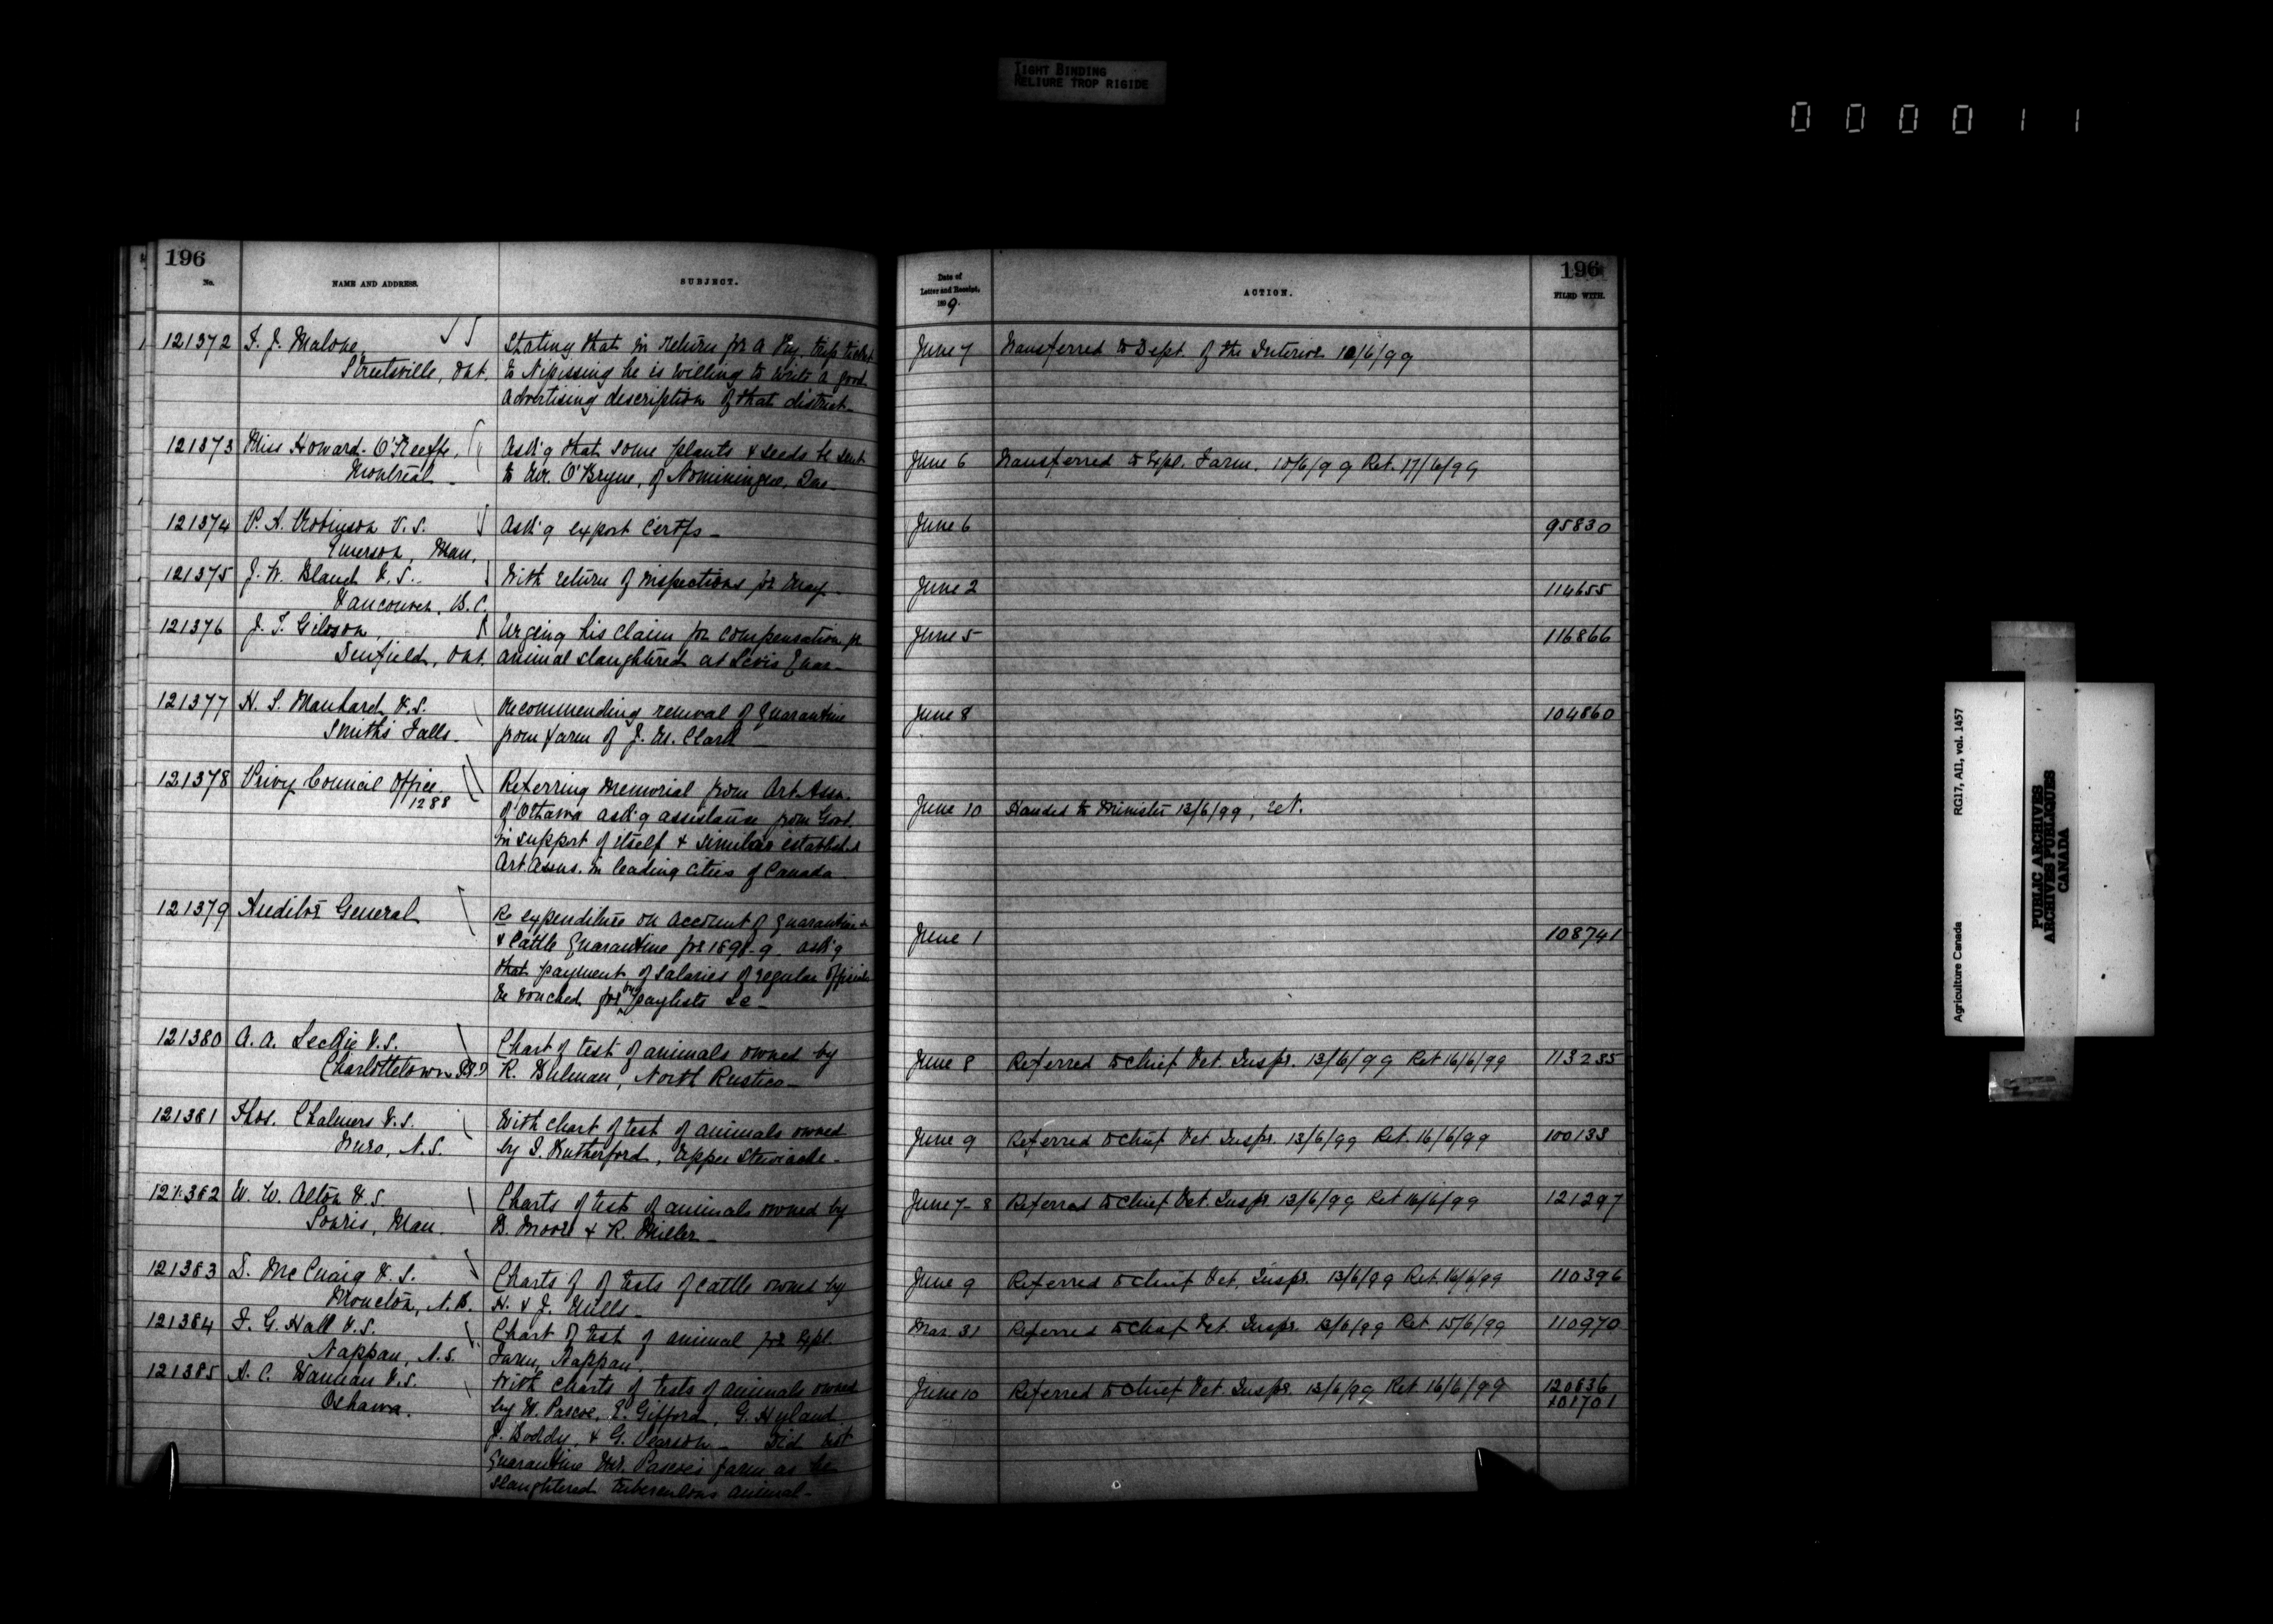 TIGHT BINDING
RELIURE TROP RIGIDE
0 0 0 0 1 1
196
No.
NAME AND ADDRESS.
SUBJECT.
121372 F. J. Malone
Streetsville, Ont.
Stating that in return for a trip ticket
to Nipissing he is willing to write a good
advertising description of that district
121373 Miss Howard-O'Keeffe,
Montreal
Ask'g that some plants & seeds be sent
to Mr. O'Bryne, of Nominingue, Que.
121374 P. A. Robinson V.S.
Emerson, Man.
Ask'g export certfs
121375 J. W. Bland V.S.
Vancouver, B.C.
With return of inspections for May
121376 J. T. Gibson
Denfield, Ont.
Urging his claim for compensation for
animal slaughtered at Levis Quar
121377 H. S. Manhard V.S.
Smith's Falls
Recommending removal of quarantine
from farm of J. M. Clark
121378 Privy Council Office
1288
Referring memorial from Art Assn.
of Ottawa ask'g assistance from Govt.
in support of itself & similar established
Art Assns. in leading cities of Canada
121379 Auditor General
Re expenditure on account of quarantine
& Cattle Quarantine for 1898-9. ask'g
that payment of salaries of regular officials
be vouched for by paylists &c
121380 A. A. Leckie V.S.
Charlottetown
Chart of test of animals owned by
R. Bulman, North Rustico
121381 Thos. Chalmers V.S.
Truro, N.S.
With chart of test of animals owned
by S. Rutherford, Upper Stewiacke
121382 W. W. Alton V.S.
Souris, Man.
Charts of tests of animals owned by
B. Moore & R. Miller
121383 D. McCuaig V.S.
Moncton, N.B.
Charts of of tests of cattle owned by
H. & J. Mills
121384 F. G. Hall V.S.
Nappan, N.S.
Chart of test of animal for Expl.
Farm, Nappan.
121385 A. C. Wannan V.S.
Oshawa.
With charts of tests of animals owned
by W. Pascoe, E. Gifford, G. Hyland
J. Boddy, & G. Pearson Did not
quarantine Mr. Pascoe's farm as he
slaughtered tuberculous animal
Date of
Letter and Receipt,
1899.
ACTION.
196
FILED WITH.
June 7 Transferred to Dept. of the Interior 10/6/99
June 6 Transferred to Expl. Farm. 10/6/99 Ret. 17/6/99
June 6 95830
June 2 114655
June 5 116866
June 8 104860
June 10 Handed to Minister 13/6/99,
June 1 108741
June 8 Referred to Chief Vet. Inspr. 13/6/99 Ret 16/6/99 113235
June 9 Referred to Chief Vet. Inspr. 13/6/99 Ret. 16/6/99 100133
June 7-8 Referred to Chief Vet. Inspr. 13/6/99 Ret 16/6/99 121297
June 9 Referred to Chief Vet. Inspr. 13/6/99 Ret. 16/6/99 110396
Mar. 31 Referred to Chief Vet. Inspr. 13/6/99 Ret. 15/6/99 110970
June 10 Referred to Chief Vet. Inspr. 13/6/99 Ret 16/6/99 120636
101701
RG17, AII, vol. 1457
Agriculture Canada
PUBLIC ARCHIVES
ARCHIVES PUBLIQUES
CANADA